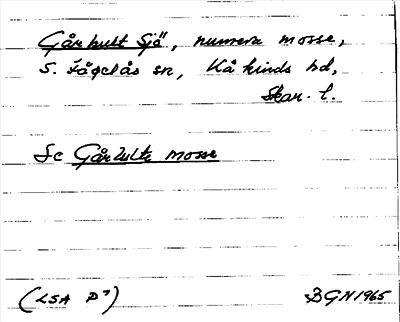 Gårhult Sjö", numera mosse,
S. Fågelås sn, Kåkinds hd,
Skar. l.
Se Gårhults mosse
(LSA P7) BGN 1965